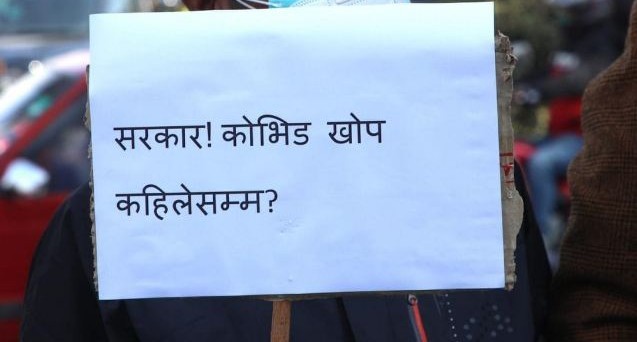 सरकार! कोभिड खोप
कहिलेसम्म?